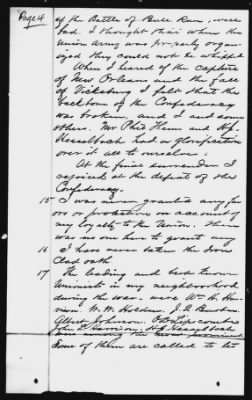 Page 4
of the Battle of Bull Run, were
bad. I thought that when the
Union army was properly organ-
ized they could not be whipped
When I heard of the capture
of New Orleans and the fall
of Vicksburg I felt that the
backbone of the Confederacy
was broken, and I and some
others. Mr Phil Thiem and
Hesselbach had a glorification
over it all to ourselves.
At the final surrender I
rejoiced at the defeat of the
Confederacy.
15 I was never granted any fav
ors or protection on account of
my loyalty to the Union. There
was no one here to grant any
16 I have never taken the Iron
Clad oath
17 The leading and best known
Unionists in my neighborhood
during the war. were Wm R. Har
rison. W. W. Holden. J. Q.
Albert Johnson.
John L Harrison,
were among the most prominent
Some of them are called to tes